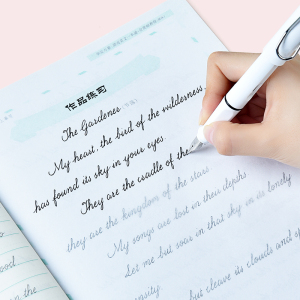 作品练习
The Gardener
My heart, the bird of the wilderness,
has found its sky in your eyes
They are the cradle of the
they are the kingdom of the stars
My songs are lost in their depths
Let me but soar in that sky in its lonely
immensity
but cleave its clouds and